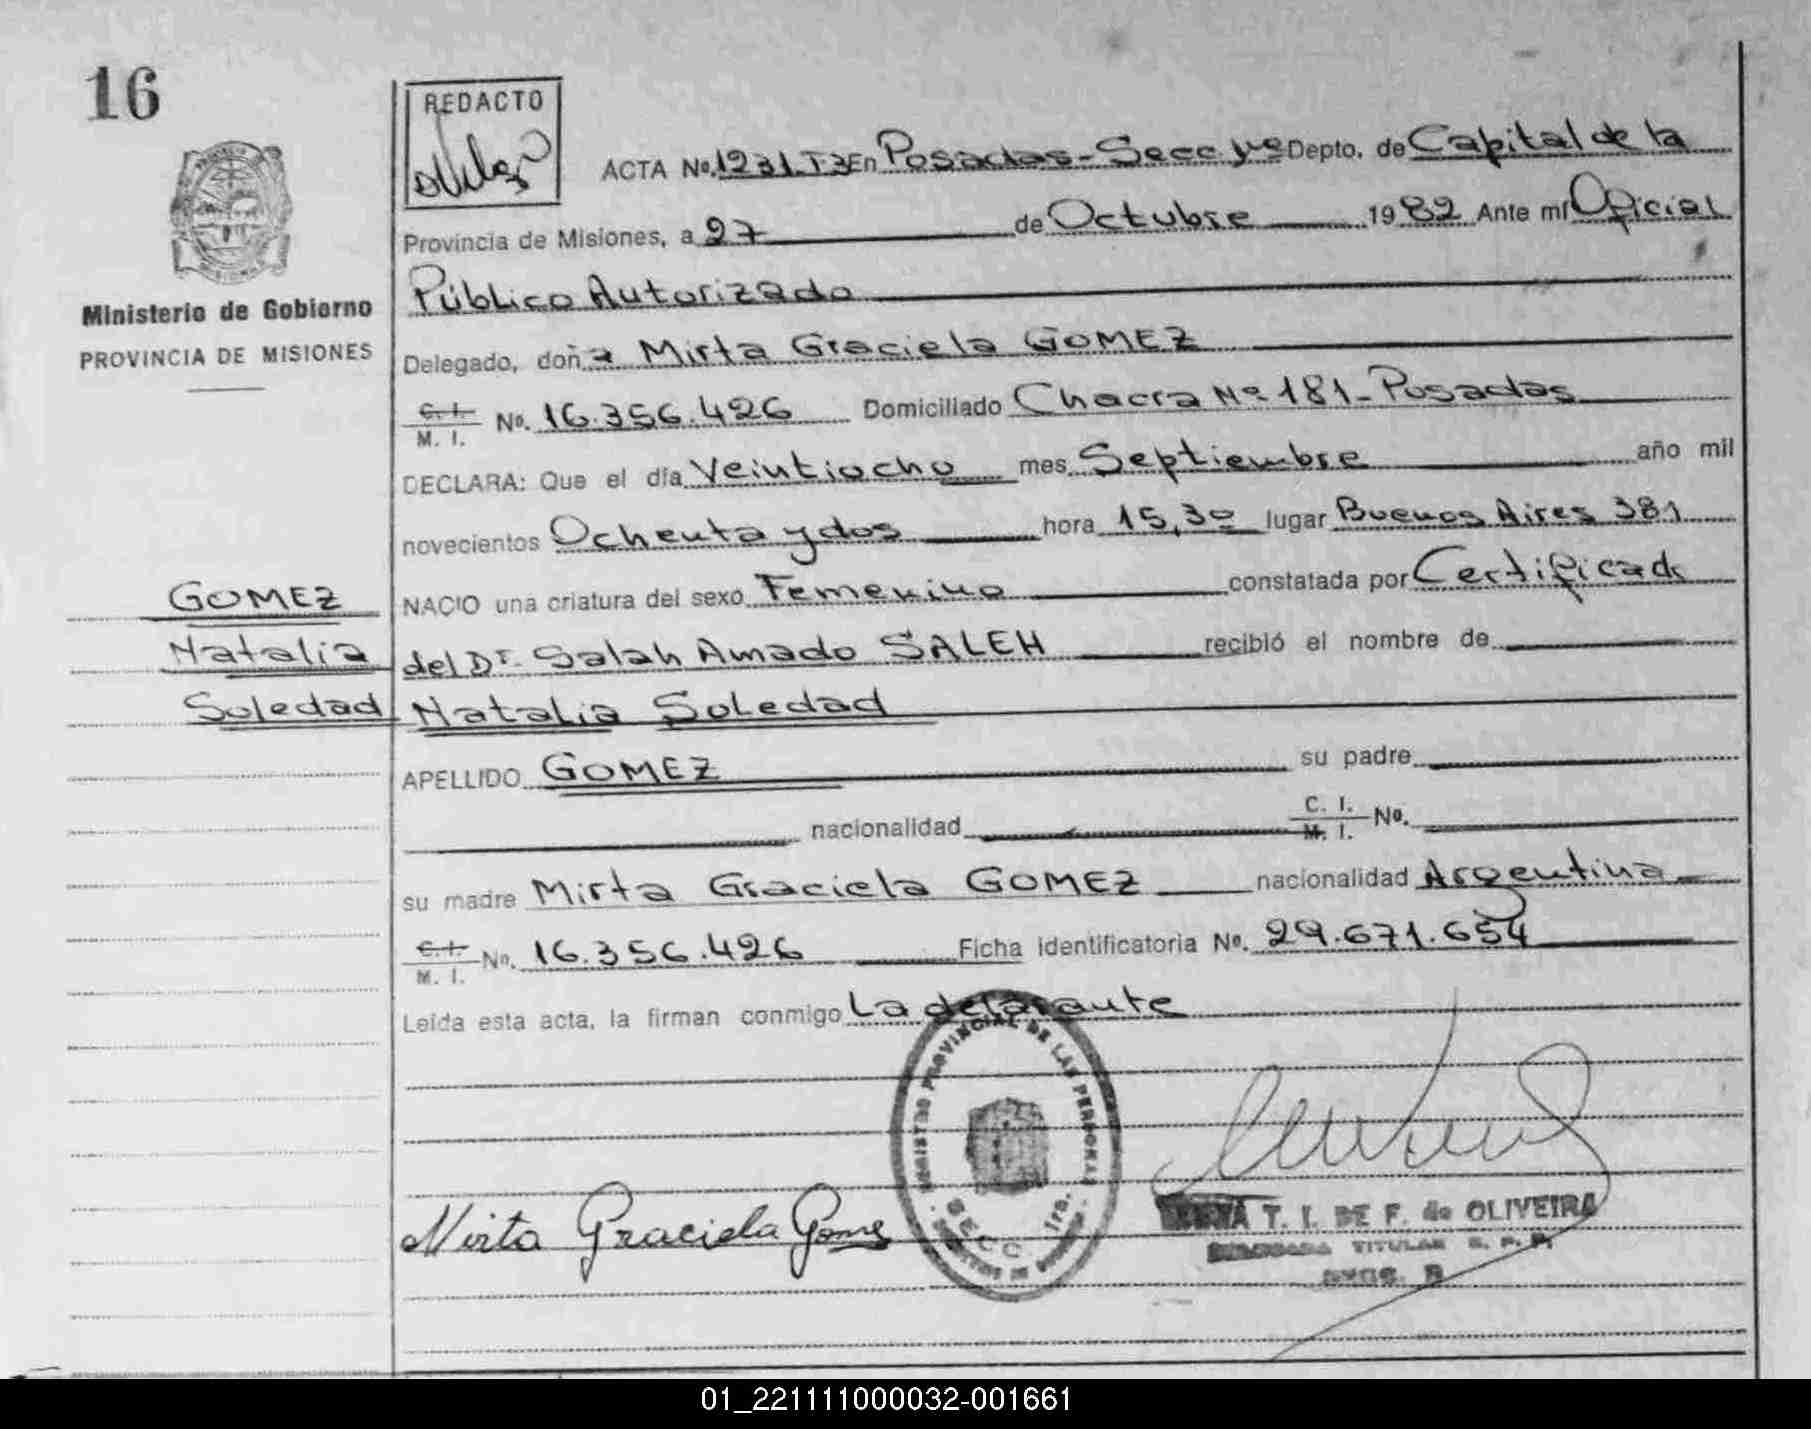 16
REDACTO
ACTA No. 1231.T3 En Posadas - Secc 1ra Depto. de Capital de la
Provincia de Misiones, a 27 de Octubre 1982 Ante mí Oficial
Público Autorizado
Ministerio de Gobierno
PROVINCIA DE MISIONES
Delegado, doña Mirta Graciela GOMEZ
C. I. M. I. No. 16.356.426 Domiciliado Chacra Nº 181 - Posadas
DECLARA: Que el día Veintiocho mes Septiembre año mil
novecientos Ochenta y dos hora 15,30 lugar Buenos Aires 381
GOMEZ
NACIO una criatura del sexo Femenino constatada por Certificado
Natalia
del Dr. Salah Amado SALEH recibió el nombre de
Soledad
Natalia Soledad
APELLIDO GOMEZ su padre
nacionalidad C. I. M. I. No.
su madre Mirta Graciela GOMEZ nacionalidad Argentina
C. I. M. I. No. 16.356.426 Ficha identificatoria No. 29.671.654
Leída esta acta, la firman conmigo La delarante
REGISTRO PROVINCIAL DE LAS PERSONAS
SECC. 1ra.
Mirta Graciela Gomez
T. I. DE F. de OLIVEIRA
TITULAR R. P. P.
01_221111000032-001661